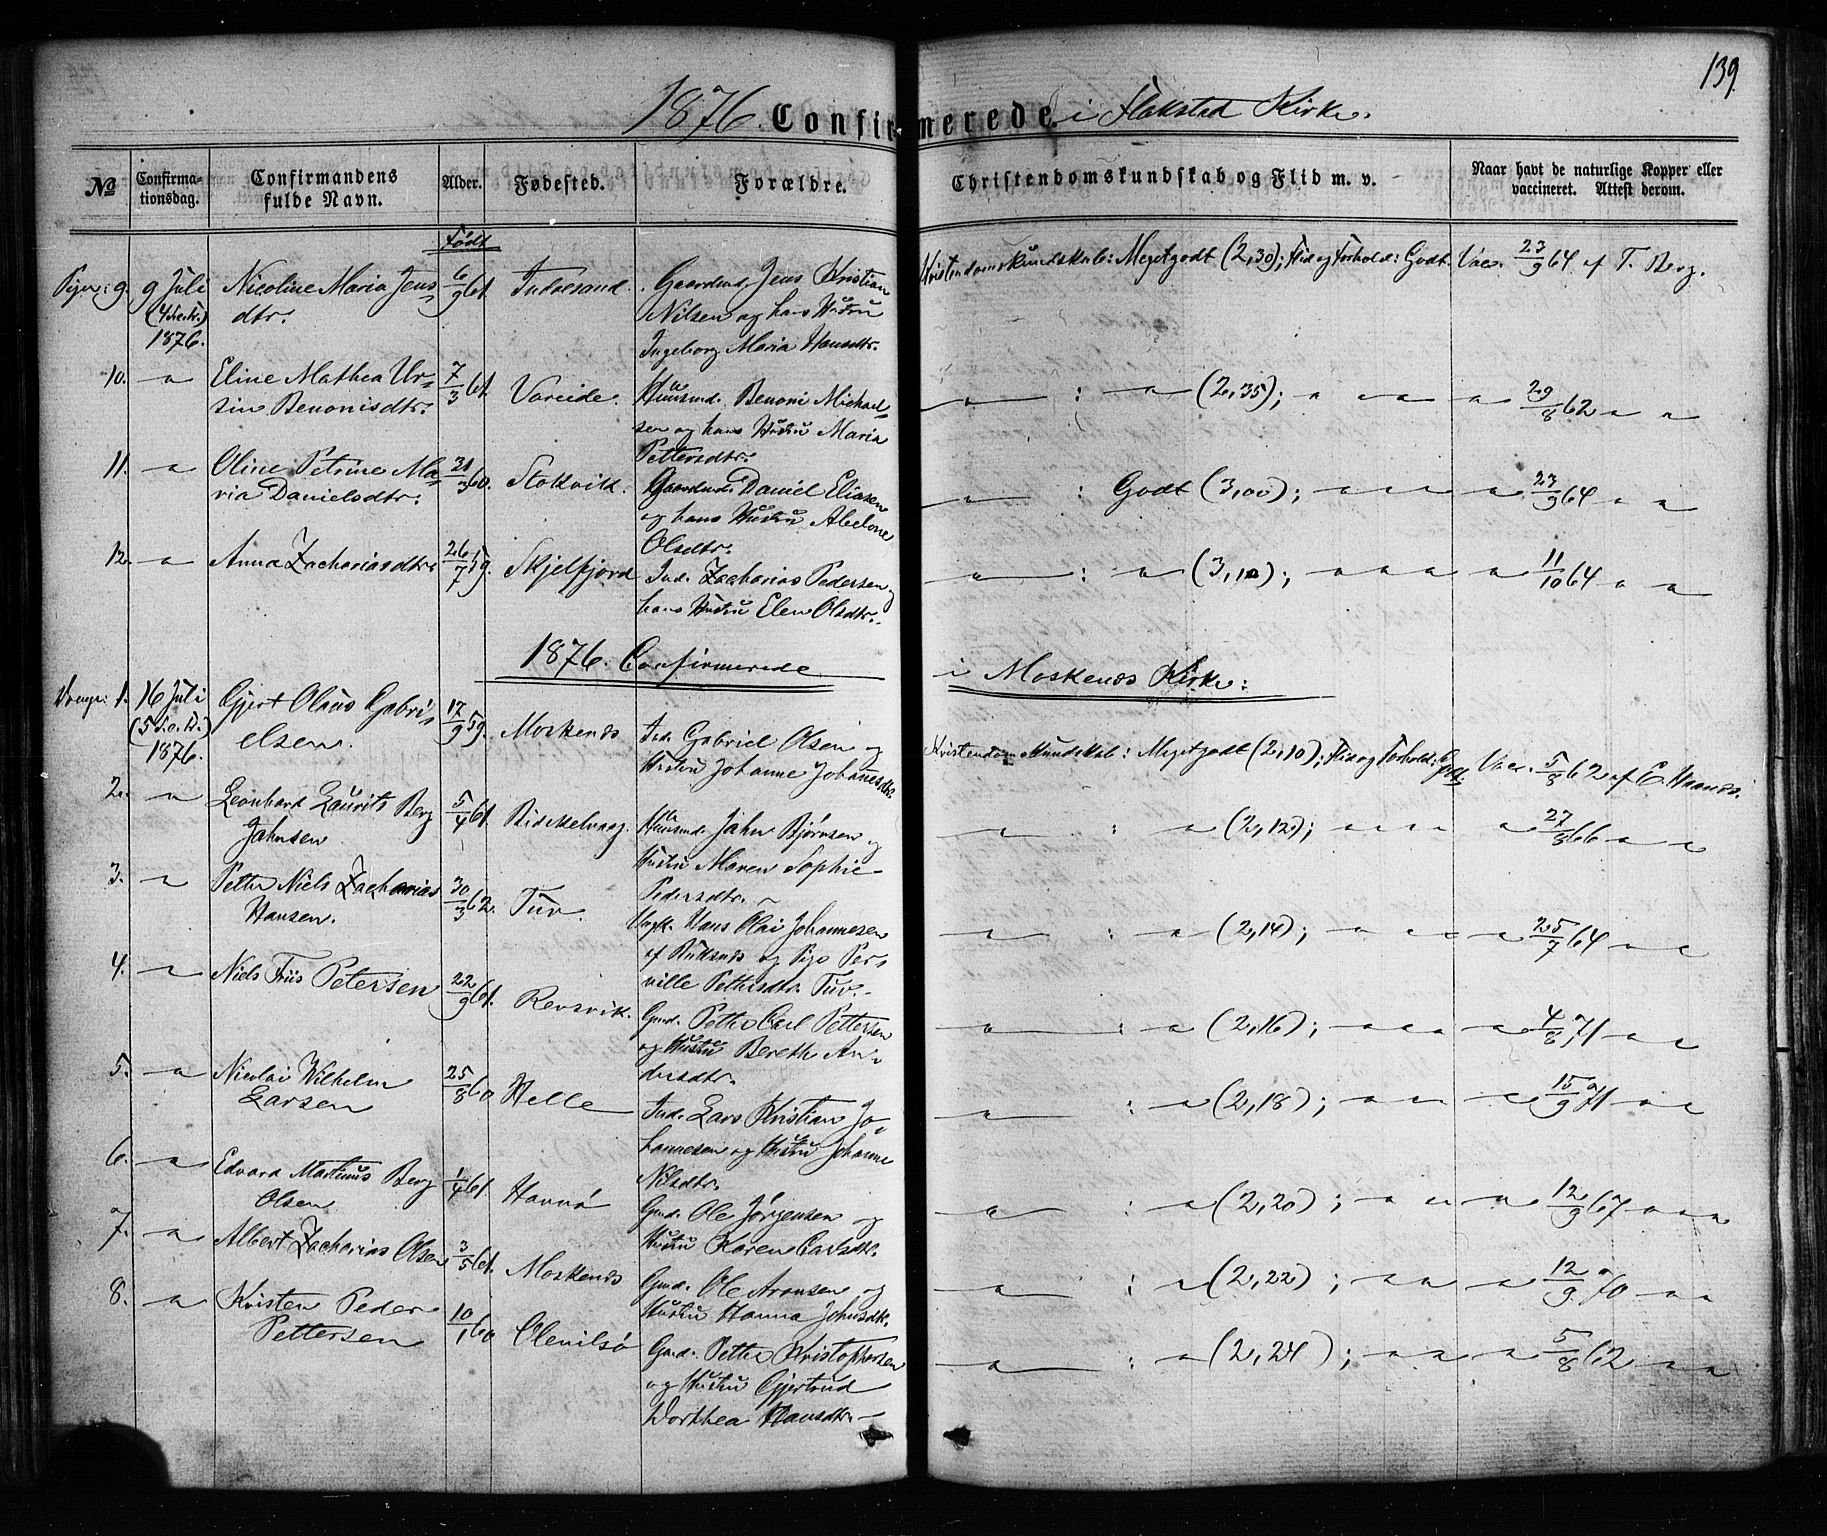 139.
1876. Confirmerede i Flakstad Kirke.
№ Confirmationsdag. Confirmandens fulde Navn. Alder. Fødested. Forældre. Christendomskundskab og Flid m. v. Naar havt de naturlige Kopper eller vaccineret. Attest derom.
Født
Piger: 9. 9 Juli Nicoline Maria Jens- 6/9 61. Indresand. Gaardmd. Jens Kristian Kristendomskundskab: Meget godt (2,30); Flid og Forhold: Godt. Vac. 23/9 64 af T. Berg.
dtr. Nilsen og hans Hustru
1876. Ingeborg Maria Hansdtr.
10. " Eline Mathea Ur- 7/3 61. Vareide. Huusmd. Benoni Michael- " : " (2,35); " " " " 29/8 62 " "
sin Benonisdtr. sen og hans Hustru Maria
Pettersdtr.
11. " Oline Petrine Ma- 21/3 60. Stokvik. Gaardmd. Daniel Eliasen " : Godt (3,00); " " " " 23/9 64 " "
ria Danielsdtr. og hans Hustru Abelone
Olsdtr.
12. " Anna Zachariasdtr. 26/7 59. Skjelfjord Ind. Zacharias Pedersen og " : " (3,10); " " " " 11/10 64 " "
hans Hustru Elen Olsdtr.
1876. Confirmerede i Moskenes Kirke:
Drenge: 1. 16 Juli Gjert Olaus Gabri- 17/9 59. Moskenes Ind. Gabriel Olsen og Kristendomskundskab: Meget godt (2,10); Flid og Forhold: Godt: Vac. 5/8 62 af E.
1876. elsen. Hustru Johanne Johannesdtr.
2. " Leonhard Laurits Berg 5/4 61. Huusmd. Jahn Bjørnsen og " : " (2,12); " " " " 27/8 66 " "
Jahnsen Hustru Maren Sophie
Pedersdtr.
3. " Petter Niels Zacharias 30/3 62. Tuv. Ungk. Hans Olai Johannesen " : " (2,14); " " " " 25/7 64 " "
Hansen. af og Pige Per-
ville Pettersdtr. Tuv.
4. " Niels Friis Petersen 22/9 61. Revsvik. Gmd. Petter Carl Pettersen " : " (2,16); " " " " 4/8 71 " "
og Hustru Berethe An-
dersdtr.
5. " Nicolai Wilhelm 25/8 60 Helle Ind. Lars Kristian Jo- " : " (2,18); " " " " 15/9 71 " "
Larsen hannesen og Hustru Johanne
Nilsdtr.
6. " Edvard Martinus Berg 1/4 61 Havnø Gmd. Ole Jørgensen og " : " (2,20); " " " 12/9 67 " " "
Olsen Hustru Karen Carlsdtr.
7. " Albert Zacharias Olsen 3/5 61. Moskenes Gmd. Ole Aronsen og " : " (2,22); " " " 12/9 70 " "
Hustru Hanna Johnsdtr.
8. " Kristen Peder 10/1 60 Olenilsø Gmd. Petter Kristophersen " : " (2,24); " " " 5/8 62 " "
Pettersen og Hustru Gjertrud
Dorthea Hansdtr.